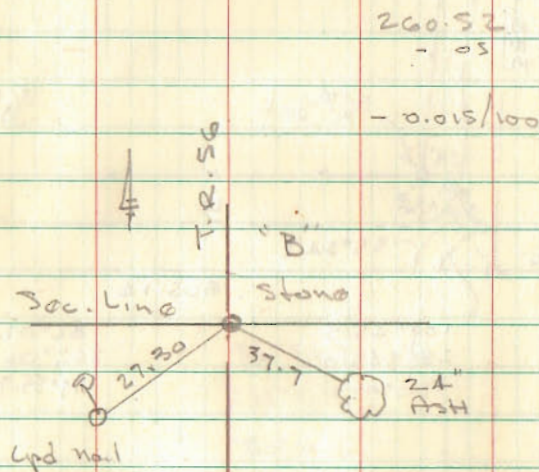 260.52
- .05
- 0.015/100
T.R. 56
"B"
Sec. Line
Stone
27.30
37.7
24"
ASH
nail